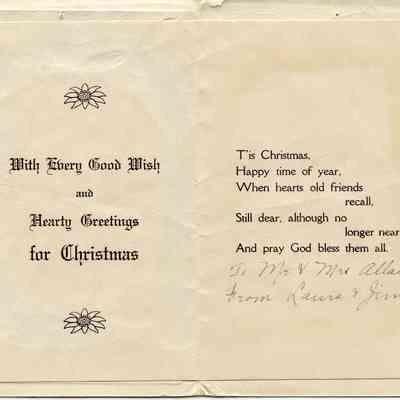 With Every Good Wish
and
Hearty Greetings
for Christmas
T'is Christmas,
Happy time of year,
When hearts old friends
recall,
Still dear, although no
longer near
And pray God bless them all.
To Mr & Mrs Alla
From Laura & Jim